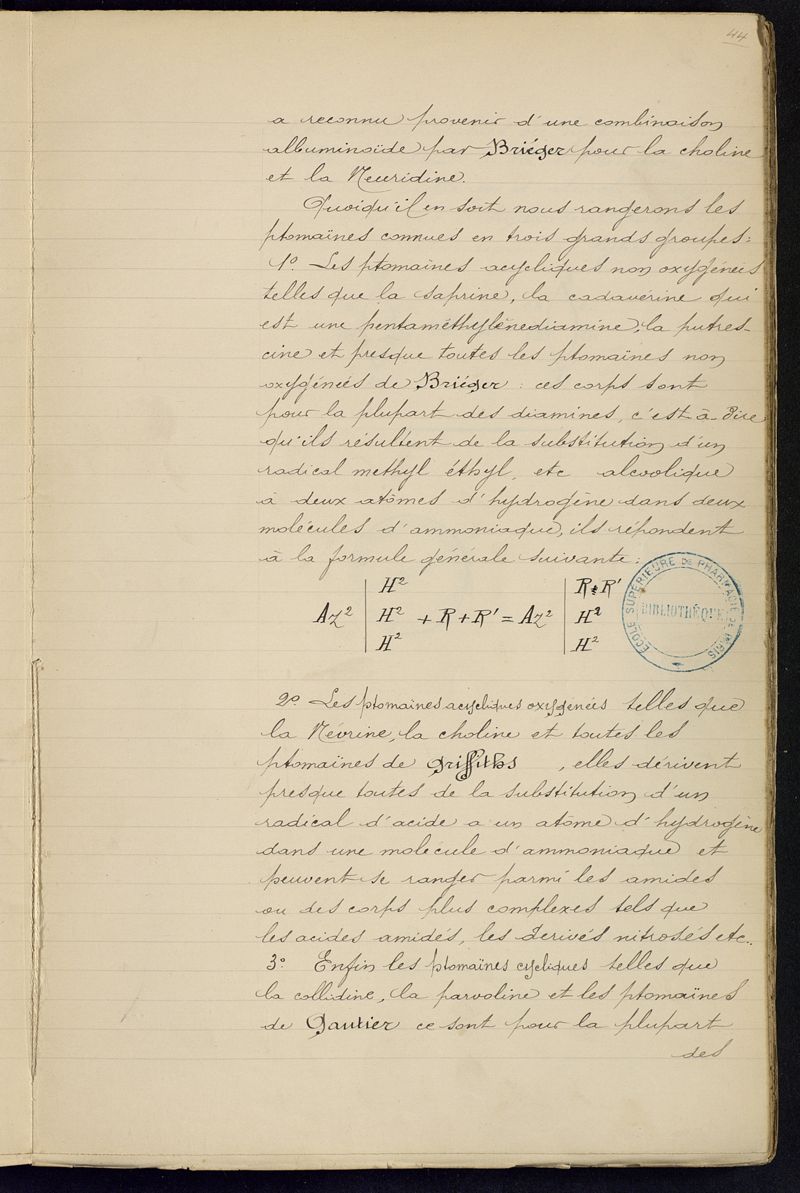 44
a reconnu provenir d'une combinaison
albuminoïde par Briéger pour la choline
et la Neuridine.
Quoiqu'il en soit nous rangerons les
ptomaïnes connues en trois grands groupes:
1º. Les ptomaïnes acycliques non oxygénées
telles que la saprine, la cadavérine qui
est une pentaméthylènediamine, la putres-
cine et presque toutes les ptomaïnes non
oxygénées de Briéger : ces corps sont
pour la plupart des diamines, c'est à dire
qu'ils résultent de la substitution d'un
radical méthyl éthyl, etc alcoolique
à deux atômes d'hydrogène dans deux
molécules d'ammoniaque, ils répondent
à la formule générale suivante:
Az² | H² H² H² + R + R' = Az² | R+R' H² H²
ECOLE SUPÉRIEURE DE PHARMACIE DE PARIS
BIBLIOTHÈQUE
2º. Les ptomaïnes acycliques oxygénées telles que
la Névrine, la choline et toutes les
ptomaïnes de Griffiths , elles dérivent
presque toutes de la substitution d'un
radical d'acide a un atôme d'hydrogène
dans une molécule d'ammoniaque et
peuvent se ranger parmi les amides
ou des corps plus complexes tels que
les acides amidés, les dérivés nitrosés etc..
3º Enfin les ptomaïnes cycliques telles que
la collidine, la parvoline et les ptomaïnes
de Gautier ce sont pour la plupart
des